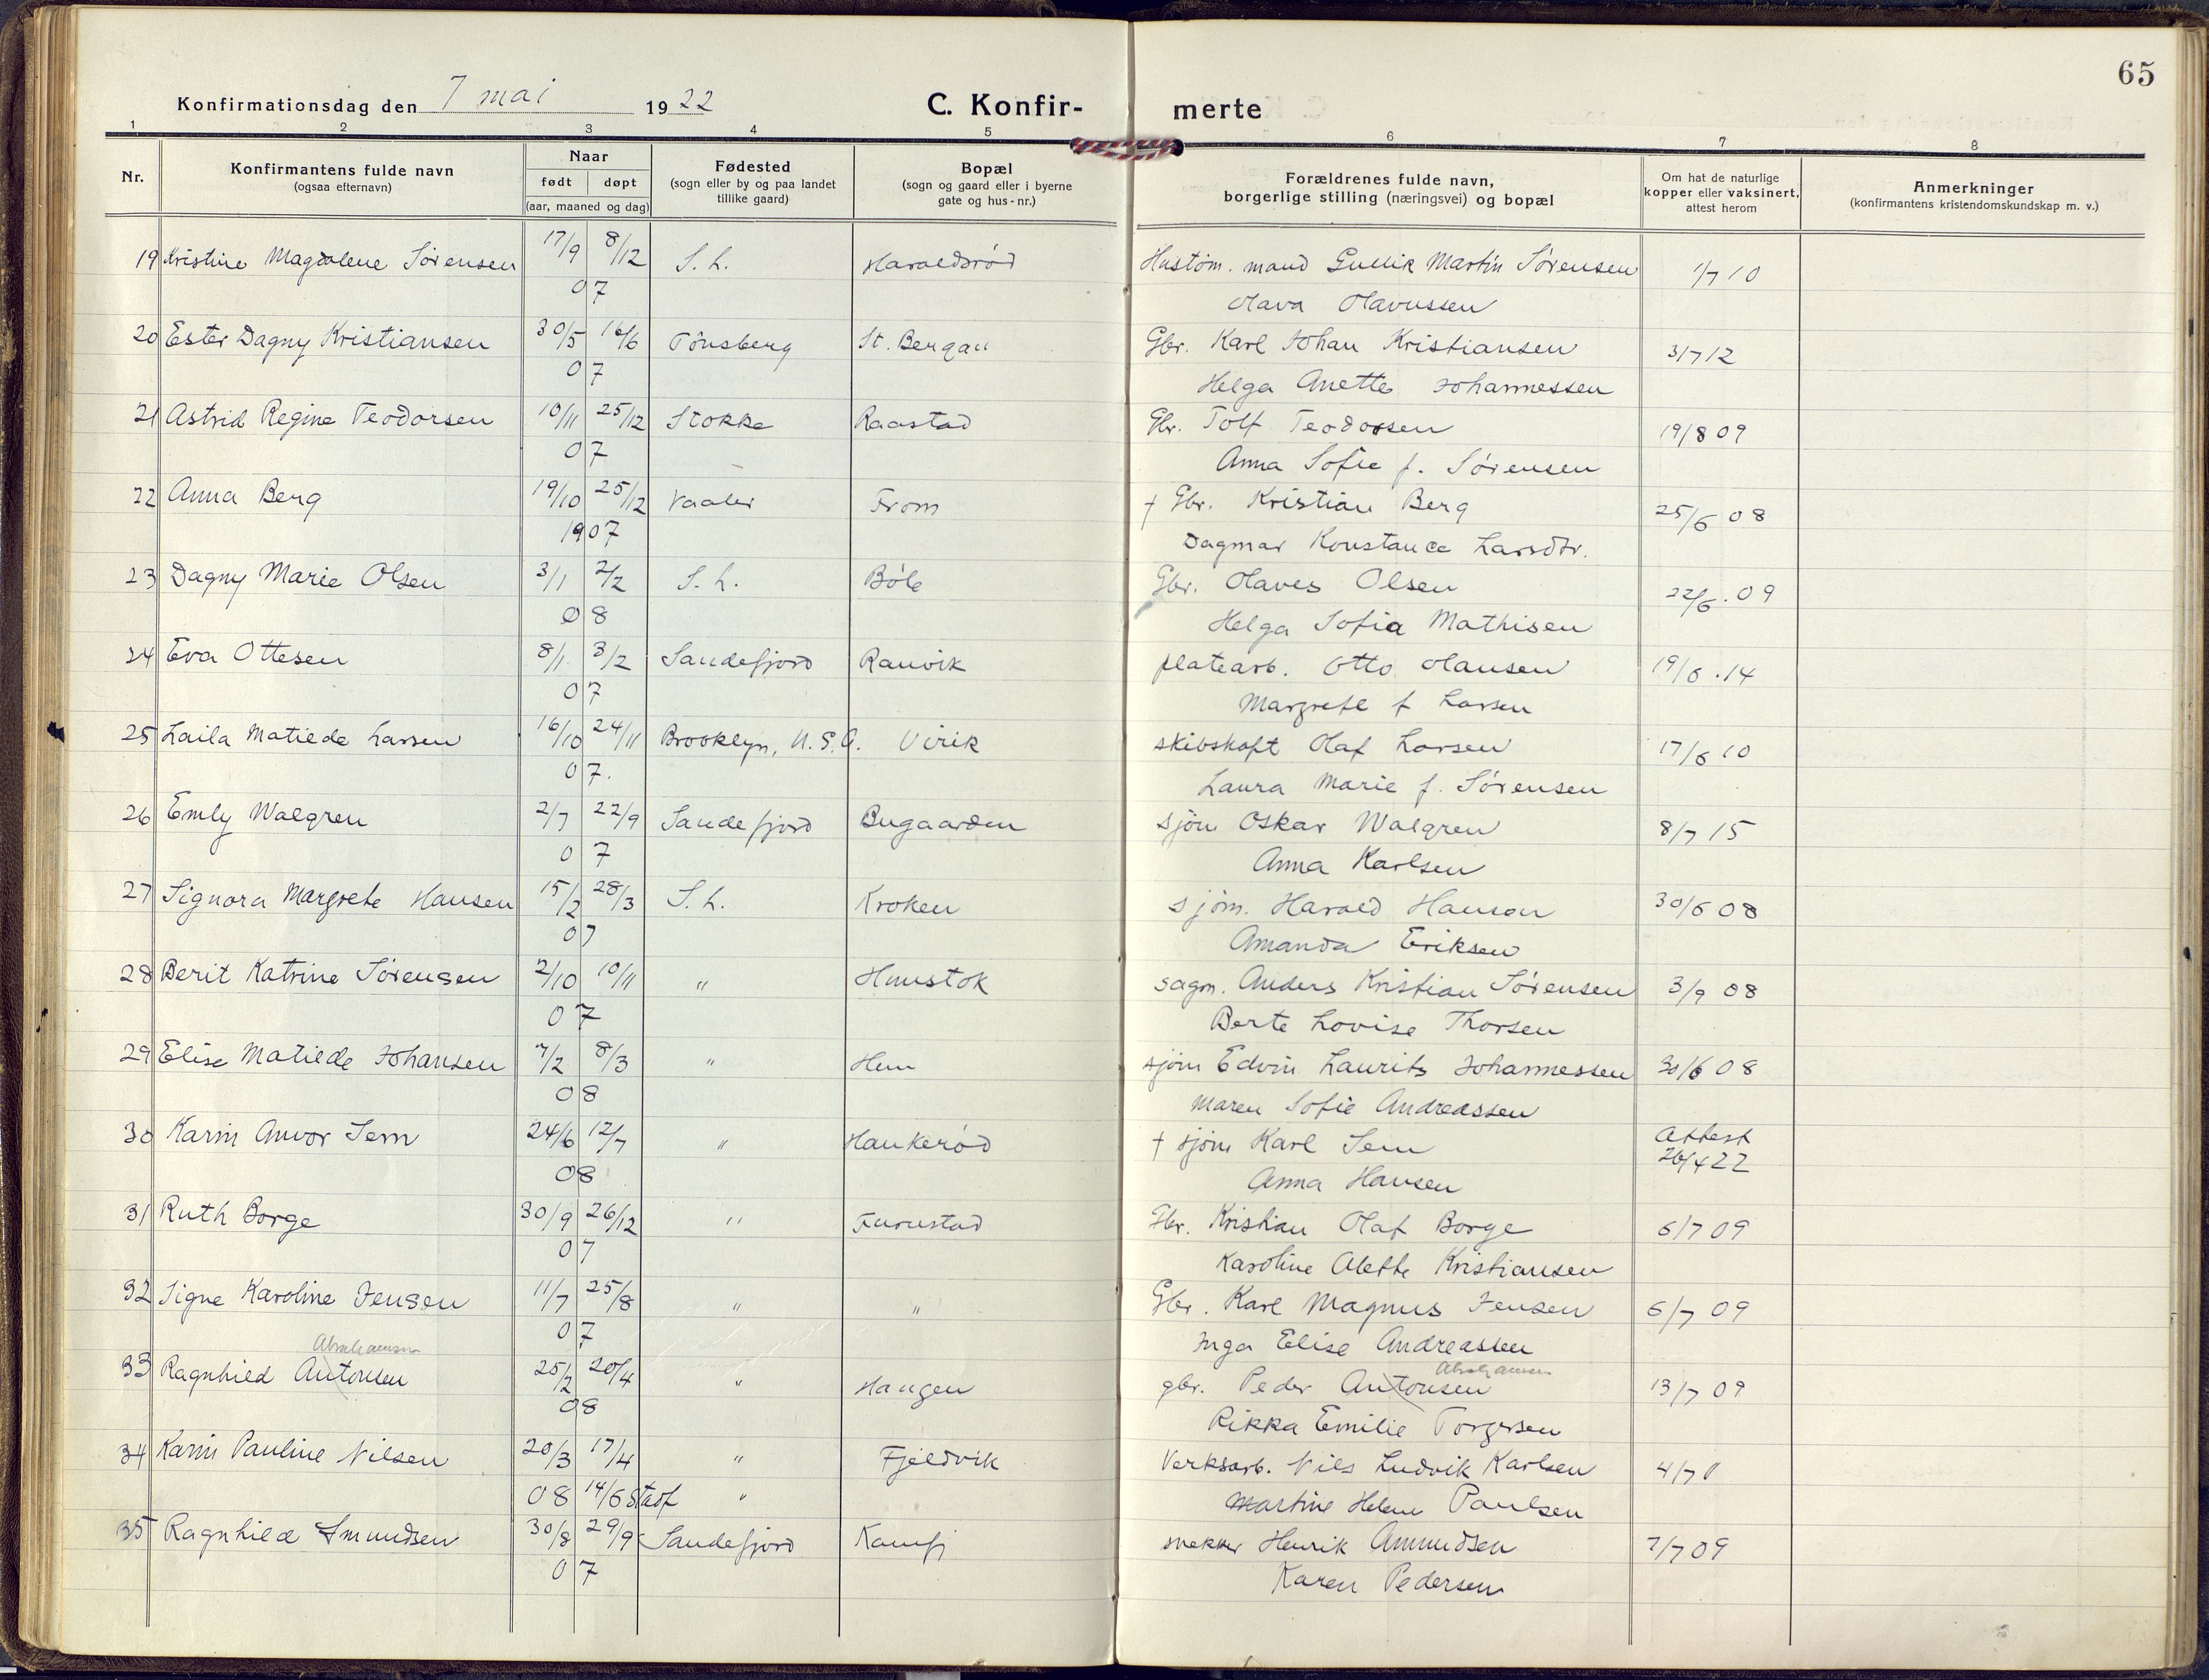 65
Konfirmationsdag den 7 mai 1922
C. Konfirmerte
1 2 3 4 5 6 7 8
Nr.
Konfirmantens fulde navn
(ogsaa efternavn)
Naar
født døpt
(aar, maaned og dag)
Fødested
(sogn eller by og paa landet
tillike gaard)
Bopæl
(sogn og gaard eller i byerne
gate og hus-nr.)
Forældrenes fulde navn,
borgerlige stilling (næringsvei) og bopæl
Om hat de naturlige
kopper eller vaksinert,
attest herom
Anmerkninger
(konfirmantens kristendomskundskap m. v.)
19 Kristine Magdalene Sørensen 17/9 8/12 S. h. Haraldsrød Hustøm. mand Gullik Martin Sørensen 1/7 10
07 Olava Olavussen
20 Ester Dagny Kristiansen 30/5 16/6 Tönsberg St. Bergan Gbr. Karl Johan Kristiansen 3/7 12
07 Helga Anette Johannessen
21 Astrid Regine Teodorsen 10/11 25/12 Stokke Raastad Gbr. Tolf Teodorsen 19/8 09
07 Anna Sofie f. Sørensen
22 Anna Berg 19/10 25/12 Vaaler From † Gbr. Kristian Berg 25/6 08
1907 Dagmar Konstance Larsdtr.
23 Dagny Marie Olsen 3/1 2/2 S. h. Bøle Gbr. Olaves Olsen 22/6. 09
08 Helga Sofia Mathisen
24 Eva Ottesen 8/1 3/2 Sandefjord Ranvik platearb. Otto Hansen 19/6 .14
07 Margrete f Larsen
25 Laila Matilde Larsen 16/10 24/11 Brooklyn, U. S. A. Virik skibskapt Olaf Larsen 17/6 10
07. Laura Marie f. Sørensen
26 Emly Walgren 2/7 22/9 Sandefjord Bugaarden sjøm Oskar Walgren 8/7 15
07 Anna Karlsen
27 Signora Margrete Hansen 15/2 28/3 S. h. Kroken sjøm. Harald Hanson 30/6 08
07 Amanda Eriksen
28 Berit Katrine Sørensen 2/10 10/11 " Hunstok sagm. Anders Kristian Sørensen 3/9 08
07 Berte Lovise Thorsen
29 Elise Matilde Johansen 7/2 8/3 " Hem sjøm Edvin Laurits Johannessen 30/6 08
08 Maren Sofie Andreassen
30 Karin Anvor Sem 24/6 12/7 " Haukerød † sjøm Karl Sem Attest
08 Anna Hansen 26/4 22
31 Ruth Borge 30/9 26/12 " Furustad Gbr. Kristian Olaf Borge 6/7 09
07 Karoline Alette Kristiansen
32 Signe Karoline Jensen 11/7 25/8 " " Gbr. Karl Magnus Jensen 6/7 09
07 Inga Elise Andreassen
Abrahamsen Abrahamsen
33 Ragnhild Antonsen 25/2 20/4 " Haugen gbr. Peder Antonsen 13/7 09
08 Rikka Emilie Torgersen
34 Karin Pauline Nilsen 20/3 17/4 " Fjeldvik Verksarb. Nils Ludvik Karlsen 4/7 1
08 14/6 stadf " Martine Helene Paulsen
35 Ragnhild Amundsen 30/8 29/9 Sandefjord Kamfj snekker Henrik Amundsen 7/7 09
07 Karen Pedersen